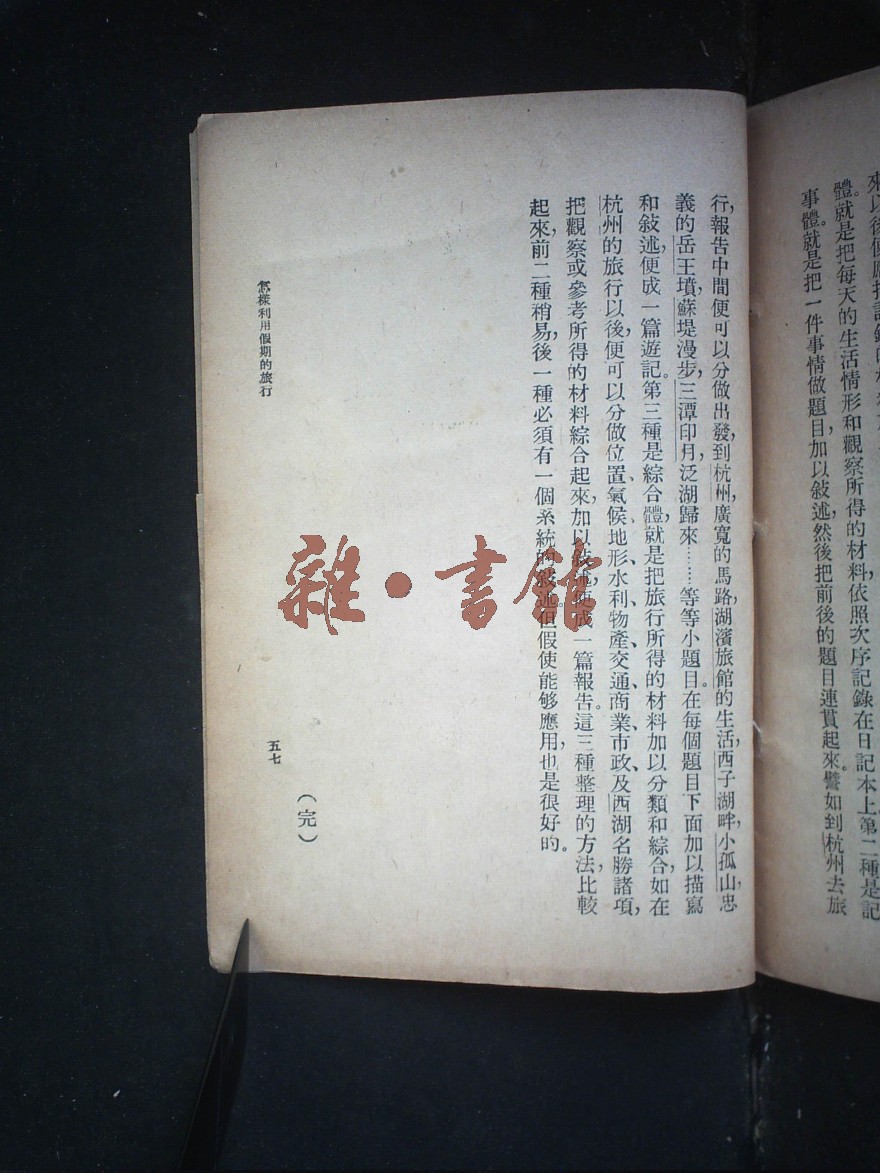 體。就是把每天的生活情形和觀察所得的材料，依照次序記錄在日記本上。第二種是記
事體。就是把一件事情做題目，加以敍述，然後把前後的題目連貫起來。譬如到杭州去旅
行，報告中間便可以分做出發，到杭州，廣寬的馬路，湖濱旅館的生活，西子湖畔，小孤山，忠
義的岳王墳，蘇堤漫步，三潭印月，泛湖歸來……等等小題目。在每個題目下面加以描寫
和敍述，便成一篇遊記。第三種是綜合體，就是把旅行所得的材料加以分類和綜合，如在
杭州的旅行以後，便可以分做位置、氣候、地形、水利、物產、交通、商業、市政、及西湖名勝諸項，
把觀察或參考所得的材料綜合起來，加以敍述，便成一篇報告。這三種整理的方法，比較
起來，前二種稍易，後一種必須有一個系統的敍述，但假使能够應用，也是很好的。
（完）
怎樣利用假期的旅行
五七
雜·書館